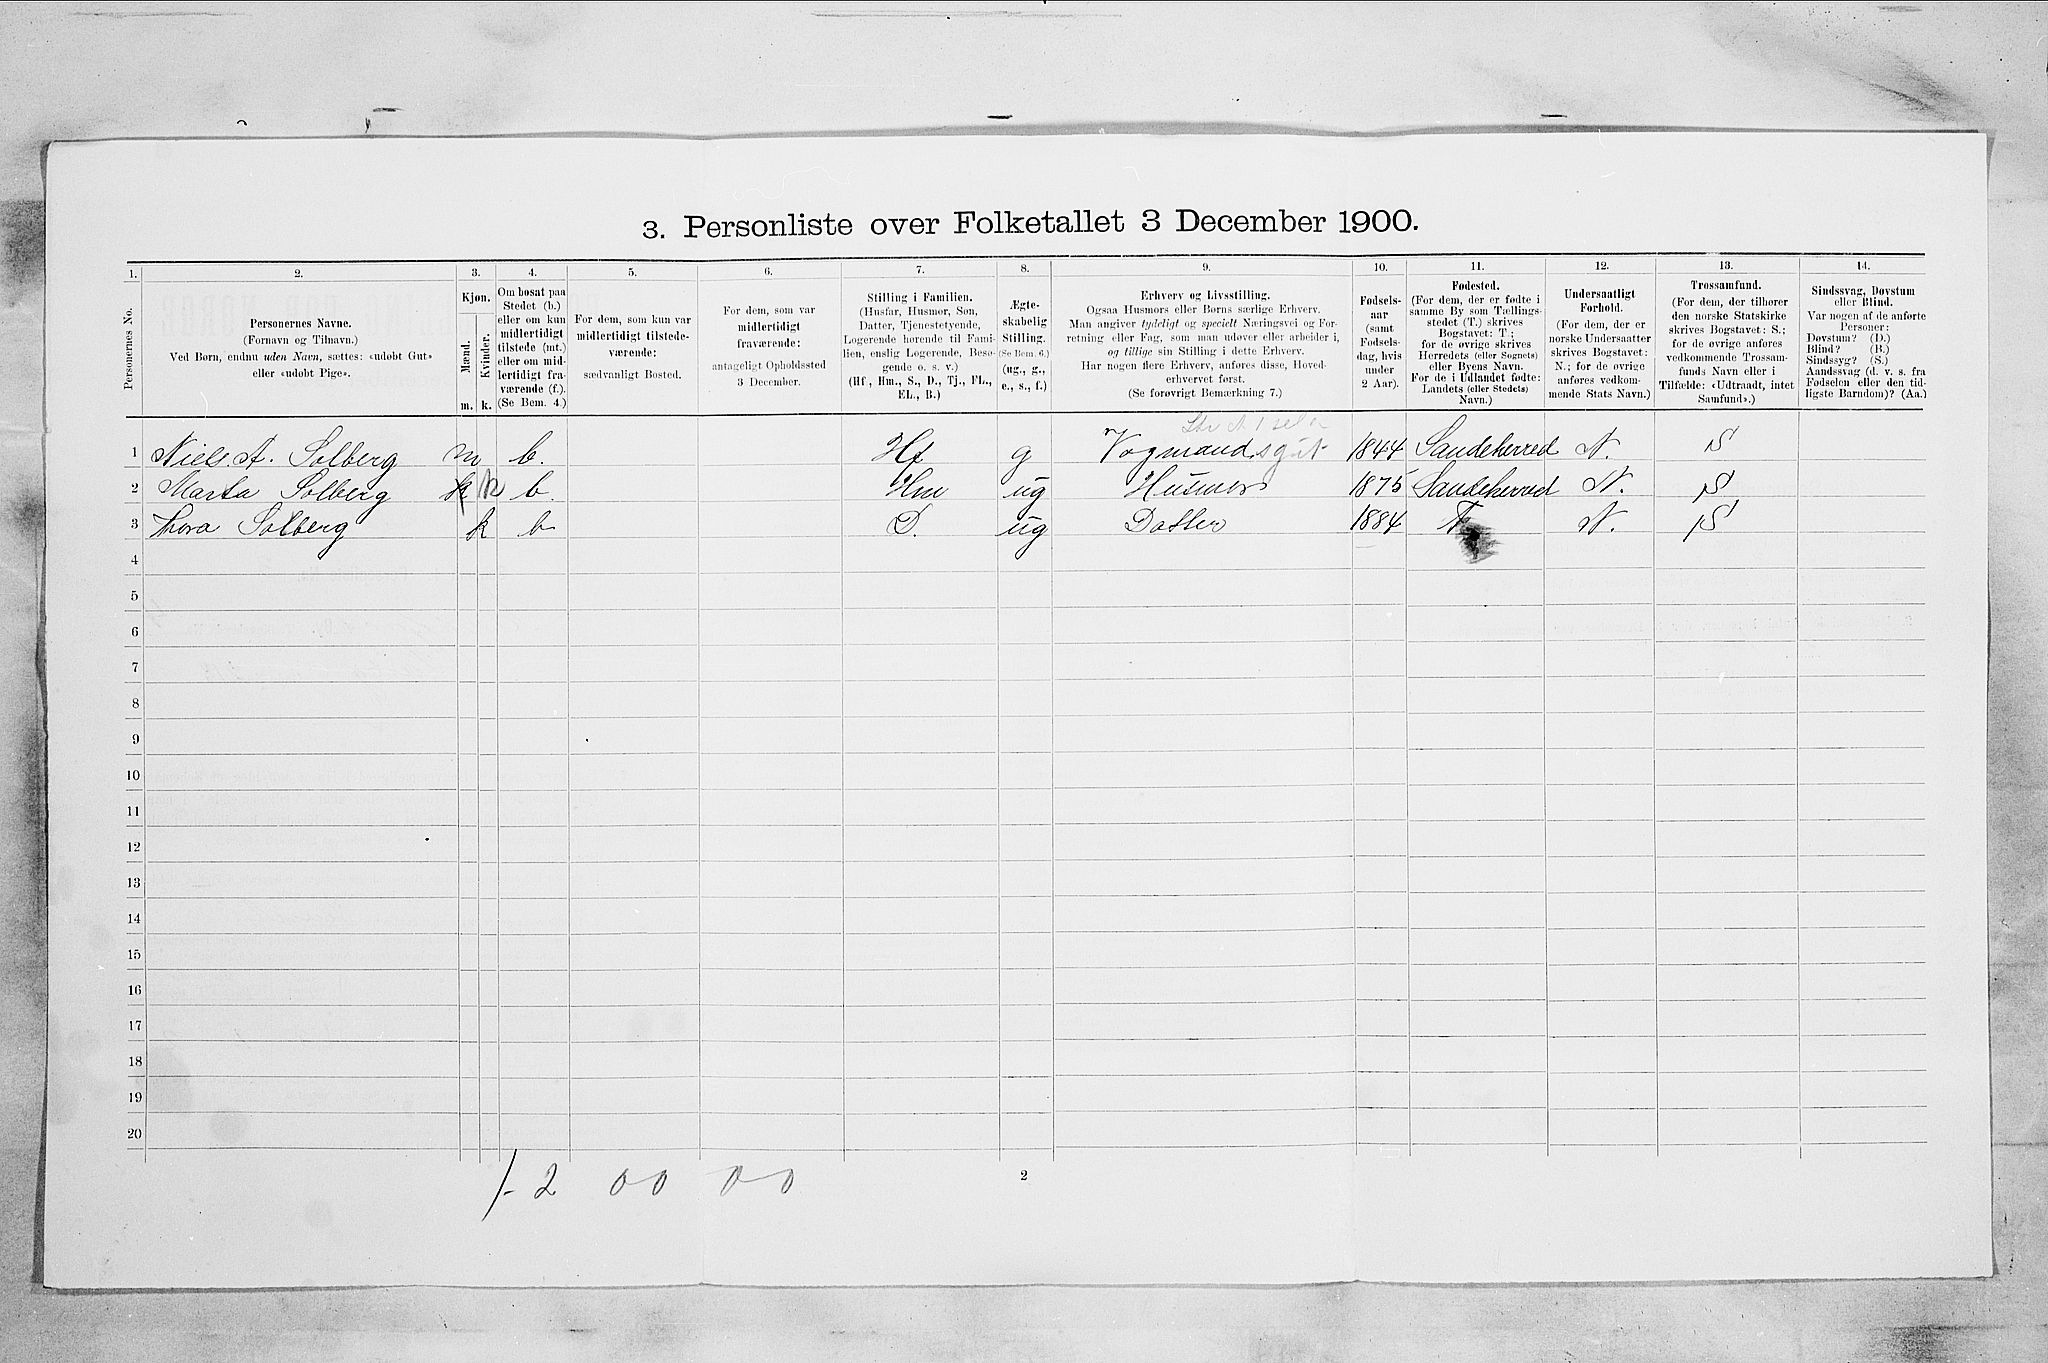 3. Personliste over Folketallet 3 December 1900.
1. 2. 3. 4. 5. 6. 7. 8. 9. 10. 11. 12. 13. 14.
Personernes No.
Personernes Navne.
(Fornavn og Tilnavn.)
Ved Børn, endnu uden Navn, sættes: «udøbt Gut»
eller «udøbt Pige».
Kjøn.
Mænd.
Kvinder.
m. k.
Om bosat paa
Stedet (b.)
eller om kun
midlertidigt
tilstede (mt.)
eller om mid-
lertidigt fra-
værende (f.).
(Se Bem. 4.)
For dem, som kun var
midlertidigt tilstede-
værende:
sædvanligt Bosted.
For dem, som var
midlertidigt
fraværende:
antageligt Opholdssted
3 December.
Stilling i Familien.
(Husfar, Husmor, Søn,
Datter, Tjenestetyende,
Logerende hørende til Fami-
lien, enslig Logerende, Besø-
gende o. s. v.)
(Hf., Hm., S., D., Tj., FL.,
EL., B.)
Ægte-
skabelig
Stilling.
(Se Bem. 6.)
(ug., g.,
e., s., f.)
Erhverv og Livsstilling.
Ogsaa Husmors eller Børns særlige Erhverv.
Man angiver tydeligt og specielt Næringsvei og For-
retning eller Fag, som man udøver eller arbeider i,
og tillige sin Stilling i dette Erhverv.
Har nogen flere Erhverv, anføres disse, Hoved-
erhvervet først.
(Se forøvrigt Bemærkning 7.)
Fødsels-
aar
(samt
Fødsels-
dag, hvis
under
2 Aar).
Fødested.
(For dem, der er fødte i
samme By som Tællings-
stedet (T.) skrives
Bogstavet: T.;
for de øvrige skrives
Herredets (eller Sognets)
eller Byens Navn.
For de i Udlandet fødte:
Landets (eller Stedets)
Navn.)
Undersaatligt
Forhold.
(For dem, der er
norske Undersaatter
skrives Bogstavet:
N.; for de øvrige
anføres vedkom-
mende Stats Navn.)
Trossamfund.
(For dem, der tilhører
den norske Statskirke
skrives Bogstavet: S.;
for de øvrige anføres
vedkommende Trossam-
funds Navn eller i
Tilfælde: «Udtraadt, intet
Samfund».)
Sindssvag, Døvstum
eller Blind.
Var nogen af de anførte
Personer:
Døvstum? (D.)
Blind? (B.)
Sindssyg? (S.)
Aandssvag (d. v. s. fra
Fødselen eller den tid-
ligste Barndom)? (Aa.)
1 Niels A. Solberg m b. Hf g Vogmand 1844 Sandeherred N. S
2 Marta Solberg k b. Hm ug Husmor 1875 Sandeherred N. S
3 Thora Solberg k b D. ug Datter 1884 T N. S
4
5
6
7
8
9
10
11
12
13
14
15
16
17
18
19
20
1-2 00 00
2